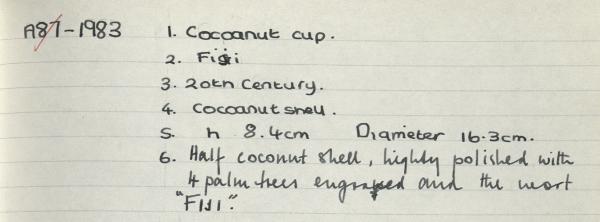 A87-1983 1. Cocoanut cup.
2. Fiji
3. 20th Century.
4. Cocoanut shell.
5. h 8.4cm Diameter 16.3cm.
6. Half coconut shell, highly polished with
4 palm trees engraved and the word
"FIJI".